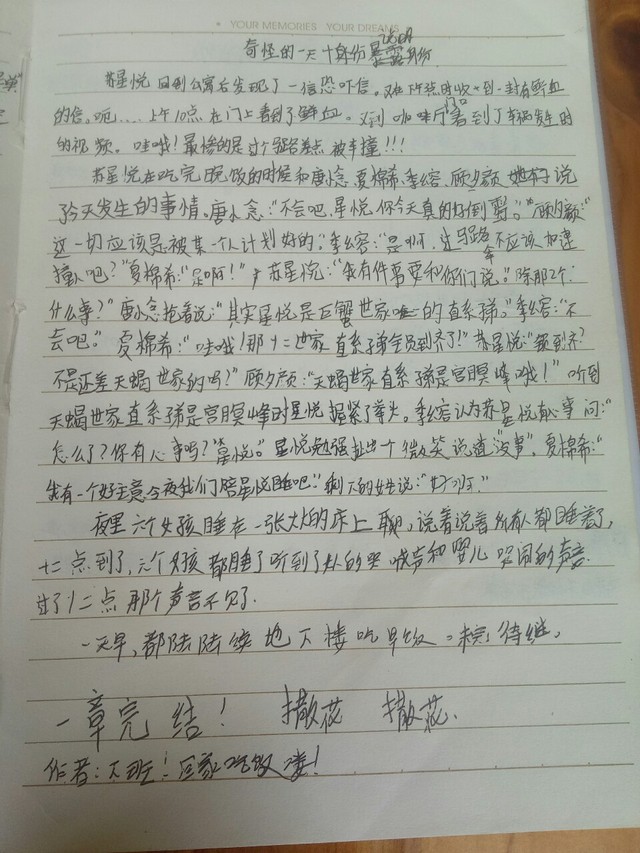 YOUR MEMORIES YOUR DREAMS
奇怪的一天十身份暴露身份
苏星悦回到公寓后发现了一信恐吓信。又在下午时收到一封有鲜血
的信。呃……上午10点在门上看到了鲜血。又到咖啡厅门口看到了车祸发生时
的视频。哇哦!最惨的是过个马路差点被车撞!!!
苏星悦在吃完晚饭的时候和唐念,夏棉希,李幺容,顾夕颜她们说
了今天发生的事情。唐念:“不会吧,星悦你今天真的好倒霉。”顾夕颜:“
这一切应该是被某一个人计划好的。”李幺容:“是啊,过马路车不应该加速
撞人吧?”夏棉希:“是啊!”苏星悦:“我有件事要和你们说。”除那2个:
什么事?”唐念抢着说:“其实星悦是巨蟹世家的直系弟。”李幺容:“不
会吧。”夏棉希:“哇哦!那十二世家直系弟会员到齐了!”苏星悦:“额到齐?
不是还差天蝎世家的吗?”顾夕颜:“天蝎世家直系弟是宫瞑峰哦!”听到
天蝎世家直系弟是宫瞑峰时星悦握紧了拳头。李幺容认为苏星悦有心事问:“
怎么了?你有心事吗?星悦。”星悦勉强扯出一个微笑说道“没事”。夏棉希:“
我有一个好主意今夜我们陪星悦睡吧。”剩下的女生说:“好啊。”
夜里六个女孩睡在一张大大的床上聊,说着说着所有人都睡着了,
十二点到了,六个女孩都睡了听到了女人的哭喊声和婴儿哭闹的声音.
过了十二点那个声音不见了.
一天早,都陆陆续续地下楼吃早饭。未完待继。
一章完结! 撒花 撒花.
作者:下班!回家吃饭喽!